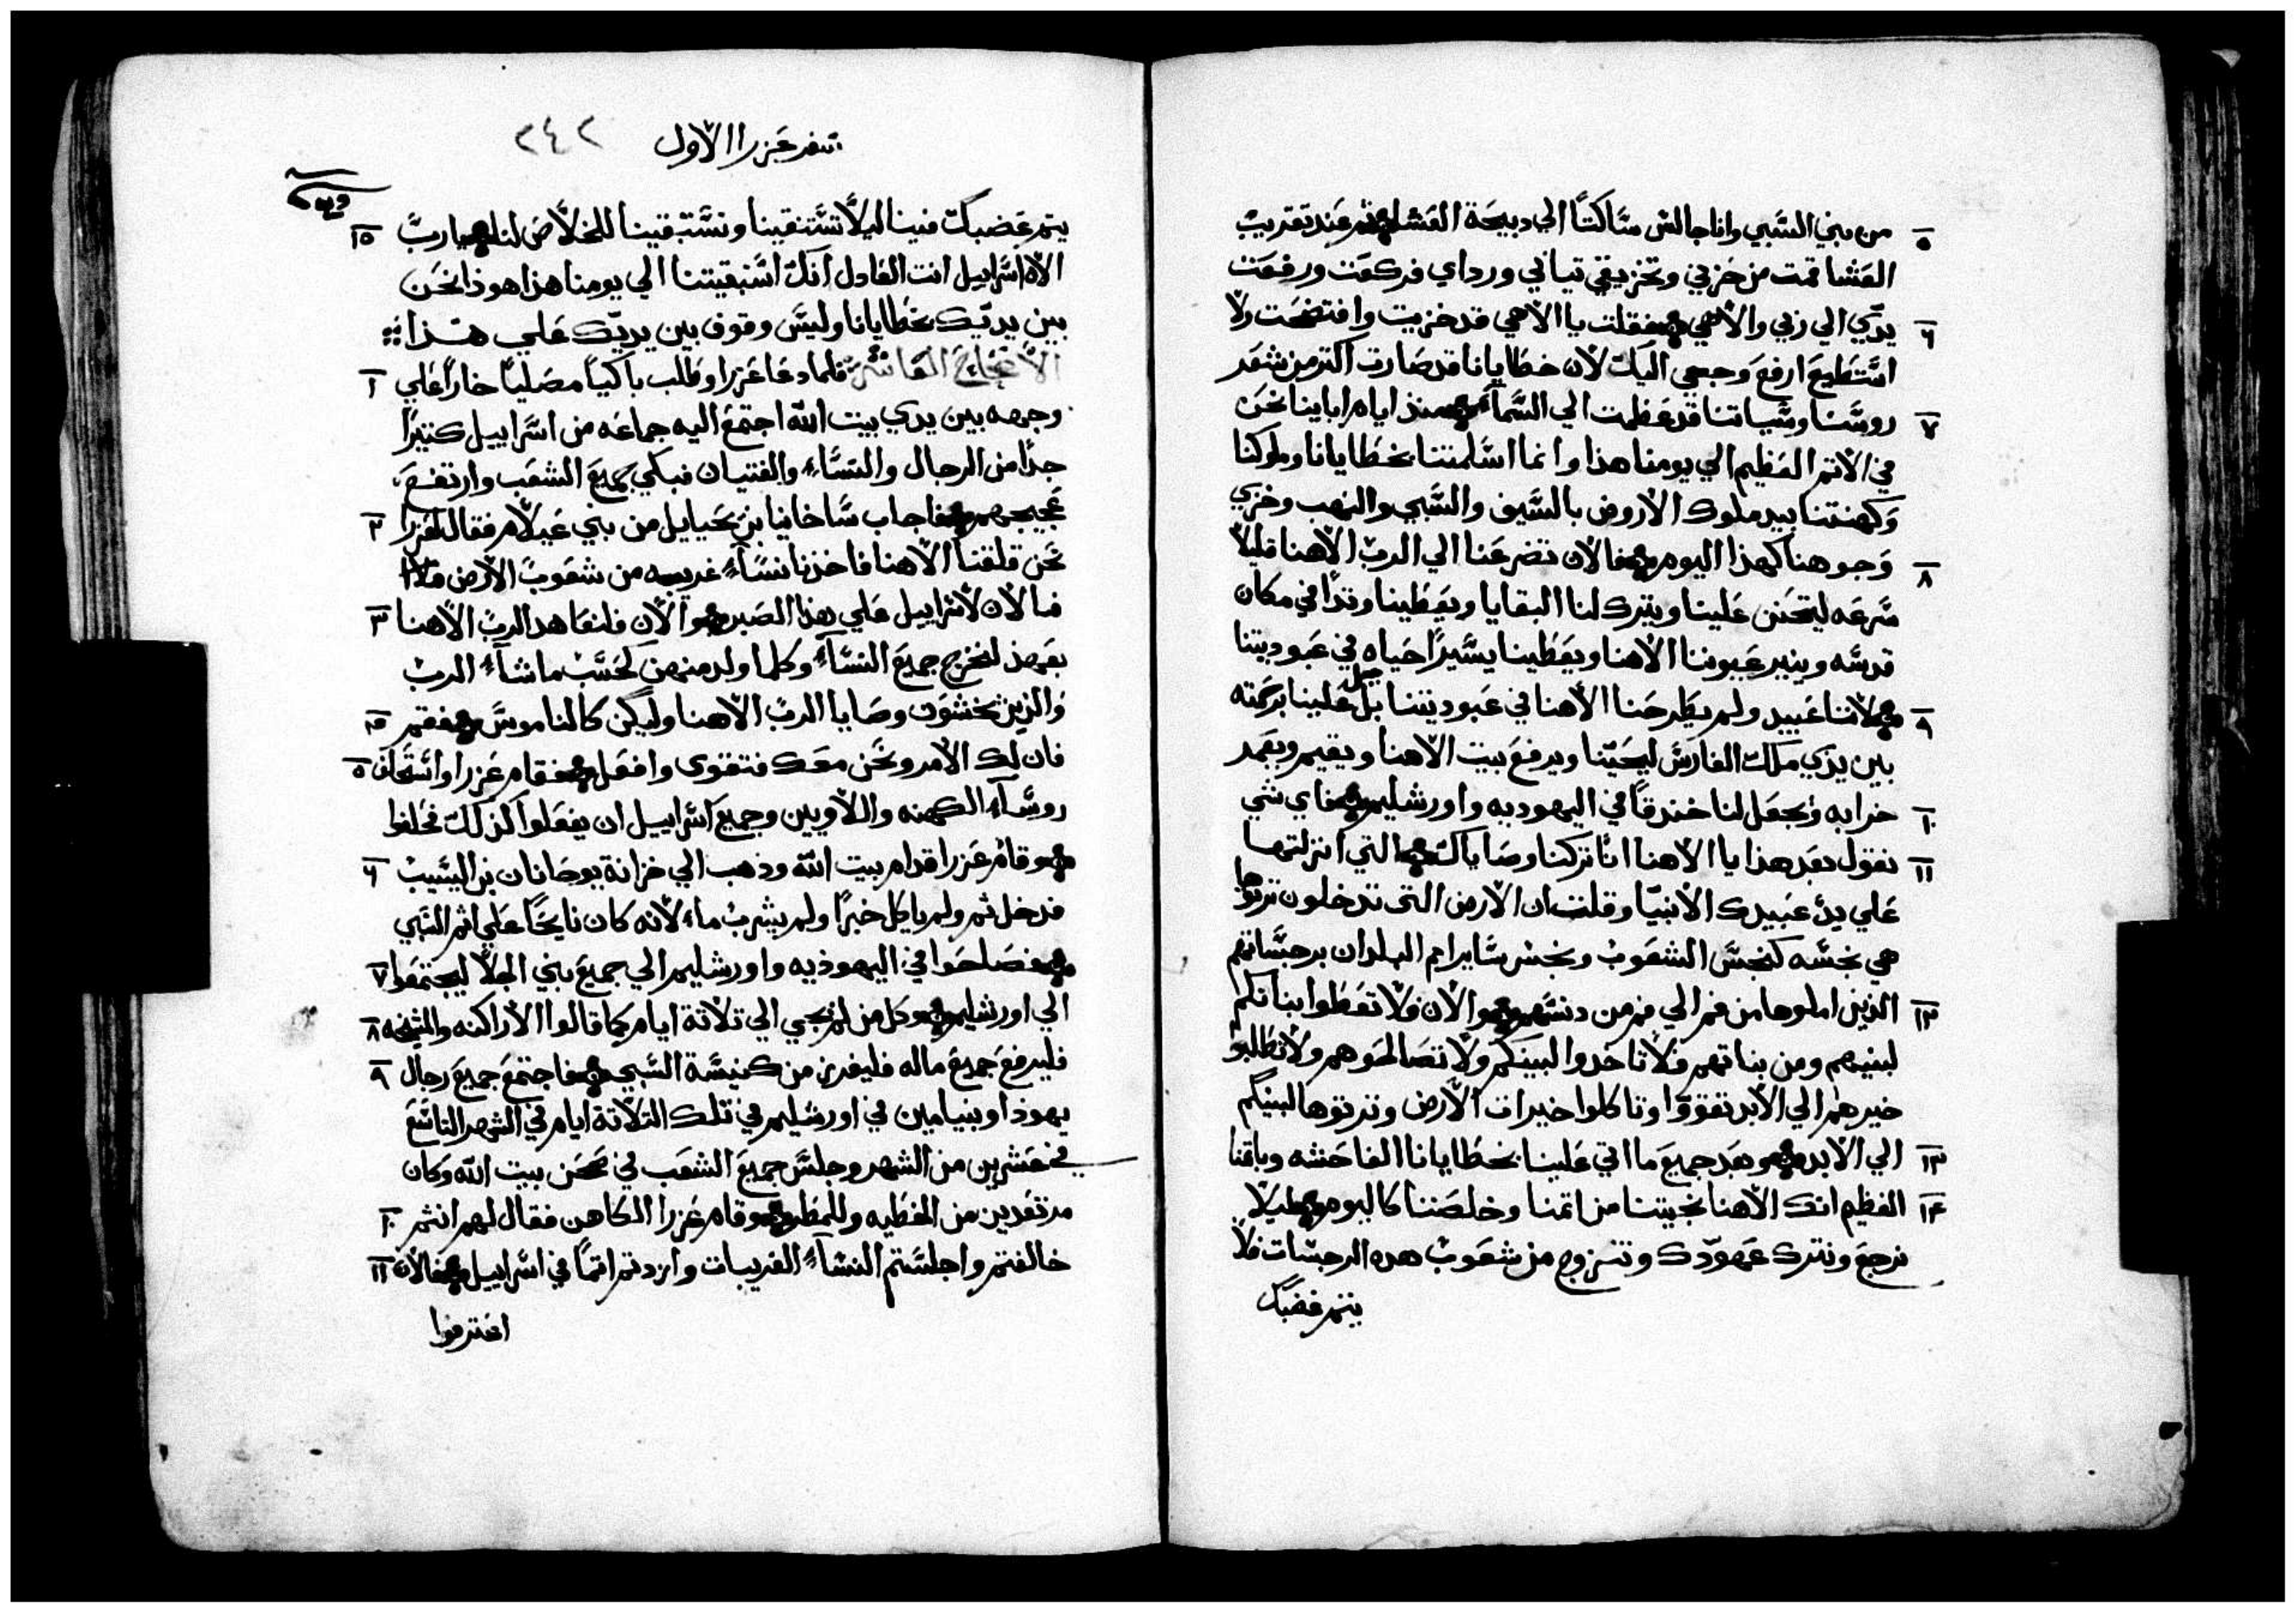 من بني السبي وانا جالس ساكتا الي دبيحة العشا ثم عند تقريب ٥
العشا قمت من حزني وتمزيقي تيابي ورداي فركعت ورفعت
يدي الي ربي والاهي فقلت يا الاهي قد خزيت وافتضحت ولا ٦
استطيع ارفع وجهي اليك لان خطايانا قد صارت اكتر من شعر
روسنا وسياتنا قد عظمت الي السماء منذ ايام ابائنا نحن ٧
في الاتم العظيم الي يومنا هذا وانما اسلمتنا بخطايانا وملوكنا
وكهنتنا بيد ملوك الارض بالسيف والسبي والنهب وخزي
وجوهنا كهذا اليوم فالان تضرعنا الي الرب الاهنا قليلا ٨
سرعه ليتحنن علينا ويترك لنا البقايا ويعطينا وتدا في مكان
قدسه وينير عيوننا الاهنا ويعطينا يسيرا حياه في عبوديتنا
لاننا عبيد ولم يطرحنا الاهنا في عبوديتنا بل علينا برحمته ٩
بين يدي ملك الفارس ليحيينا ويرفع بيت الاهنا ويقيم ويعمد
خرابه ويجعل لنا خندقا في اليهوديه واورشليم فاي شي ١٠
نقول بعد هذا يا الاهنا انا تركنا وصاياك التي انزلتها ١١
علي يد عبيدك الانبيا وقلت ان الارض التي تدخلون ترتوها
هي نجسه كنجس الشعوب ونجس ساير امم البلدان برجساتهم
الذين املوها من فم الي فم من دنسهم والان فلا تعطوا بناتكم ١٢
لبنيهم ومن بناتهم فلا تاخدوا لبنيكم ولا تصالحوهم ولا تطلبوا
خيرهم الي الابد تقووا وتاكلوا خيرات الارض وترتوها لبنيكم
الي الابد وبعد جميع ما اتي علينا بخطايانا الفاحشه وباتمنا ١٣
العظيم انك الاهنا نجيتنا من اتمنا وخلصتنا كاليوم ليلا ١٤
نرجع ونترك عهودك ونتزوج من شعوب هده الرجسات فلا
يتم غضبك
سفر عزرا الاول ٢٤٢
يتم غضبك فينا ليلا تستنقينا ونستبقينا للخلاص لنا يا رب ١٥
الاه اسراييل انت العادل انك استبقيتنا الي يومنا هذا هوذا نحن
بين يديك بخطايانا وليس وقوف بين يديك علي هذا
الاصحاح العاشر فلما دعا عزرا وطلب باكيا مصليا خارا علي ١
وجهه بين يدي بيت الله اجتمع اليه جماعه من اسراييل كتيرا
جدا من الرجال والنساء والفتيان فبكي جميع الشعب وارتفع
عجيجهم فاجاب ساخانيا بن يحيايل من بني عيلام فقال لعزرا ٢
نحن قلقنا الاهنا فاخدنا نساء غريبه من شعوب الارض
فالان لاسراييل علي هذا الصبر والان فلنعاهد الرب الاهنا ٣
بعهد لنخرج جميع النساء وكلما ولد منهن كحسب ما شاء الرب
والذين يخشون وصايا الرب الاهنا وليكن كالناموس فقم ٤
فان لك الامر ونحن معك فتقوي وافعل فقام عزرا واستحلف ٥
روساء الكهنه واللاويين وجميع اسراييل ان يفعلوا كذلك فحلفوا
وقام عزرا قدام بيت الله وذهب الي خزانة يوحانان بن اليشيب ٦
فدخل ثم ولم ياكل خبزا ولم يشرب ماء لانه كان نايحا علي اثم السبي
فصلحوا في اليهوذيه واورشليم الي جميع بني الجلا ليجتمعوا ٧
الي اورشليم وكل من لم يجي الي ثلاثة ايام كما قالوا الاراكنه والمشيخه ٨
فليرفع جميع ماله فليفرز من كنيسة السبي فاجتمع جميع رجال ٩
يهوذا وبنيامين في اورشليم في تلك التلاتة ايام في الشهر التاسع
في عشرين من الشهر وجلس جميع الشعب في صحن بيت الله وكان
مرتعدين من الخطيه وللمطر وقام عزرا الكاهن فقال لهم انتم ١٠
خالفتم واجلستم النساء الغريبات وازدتم اتما في اسراييل فالان ١١
اعترفوا